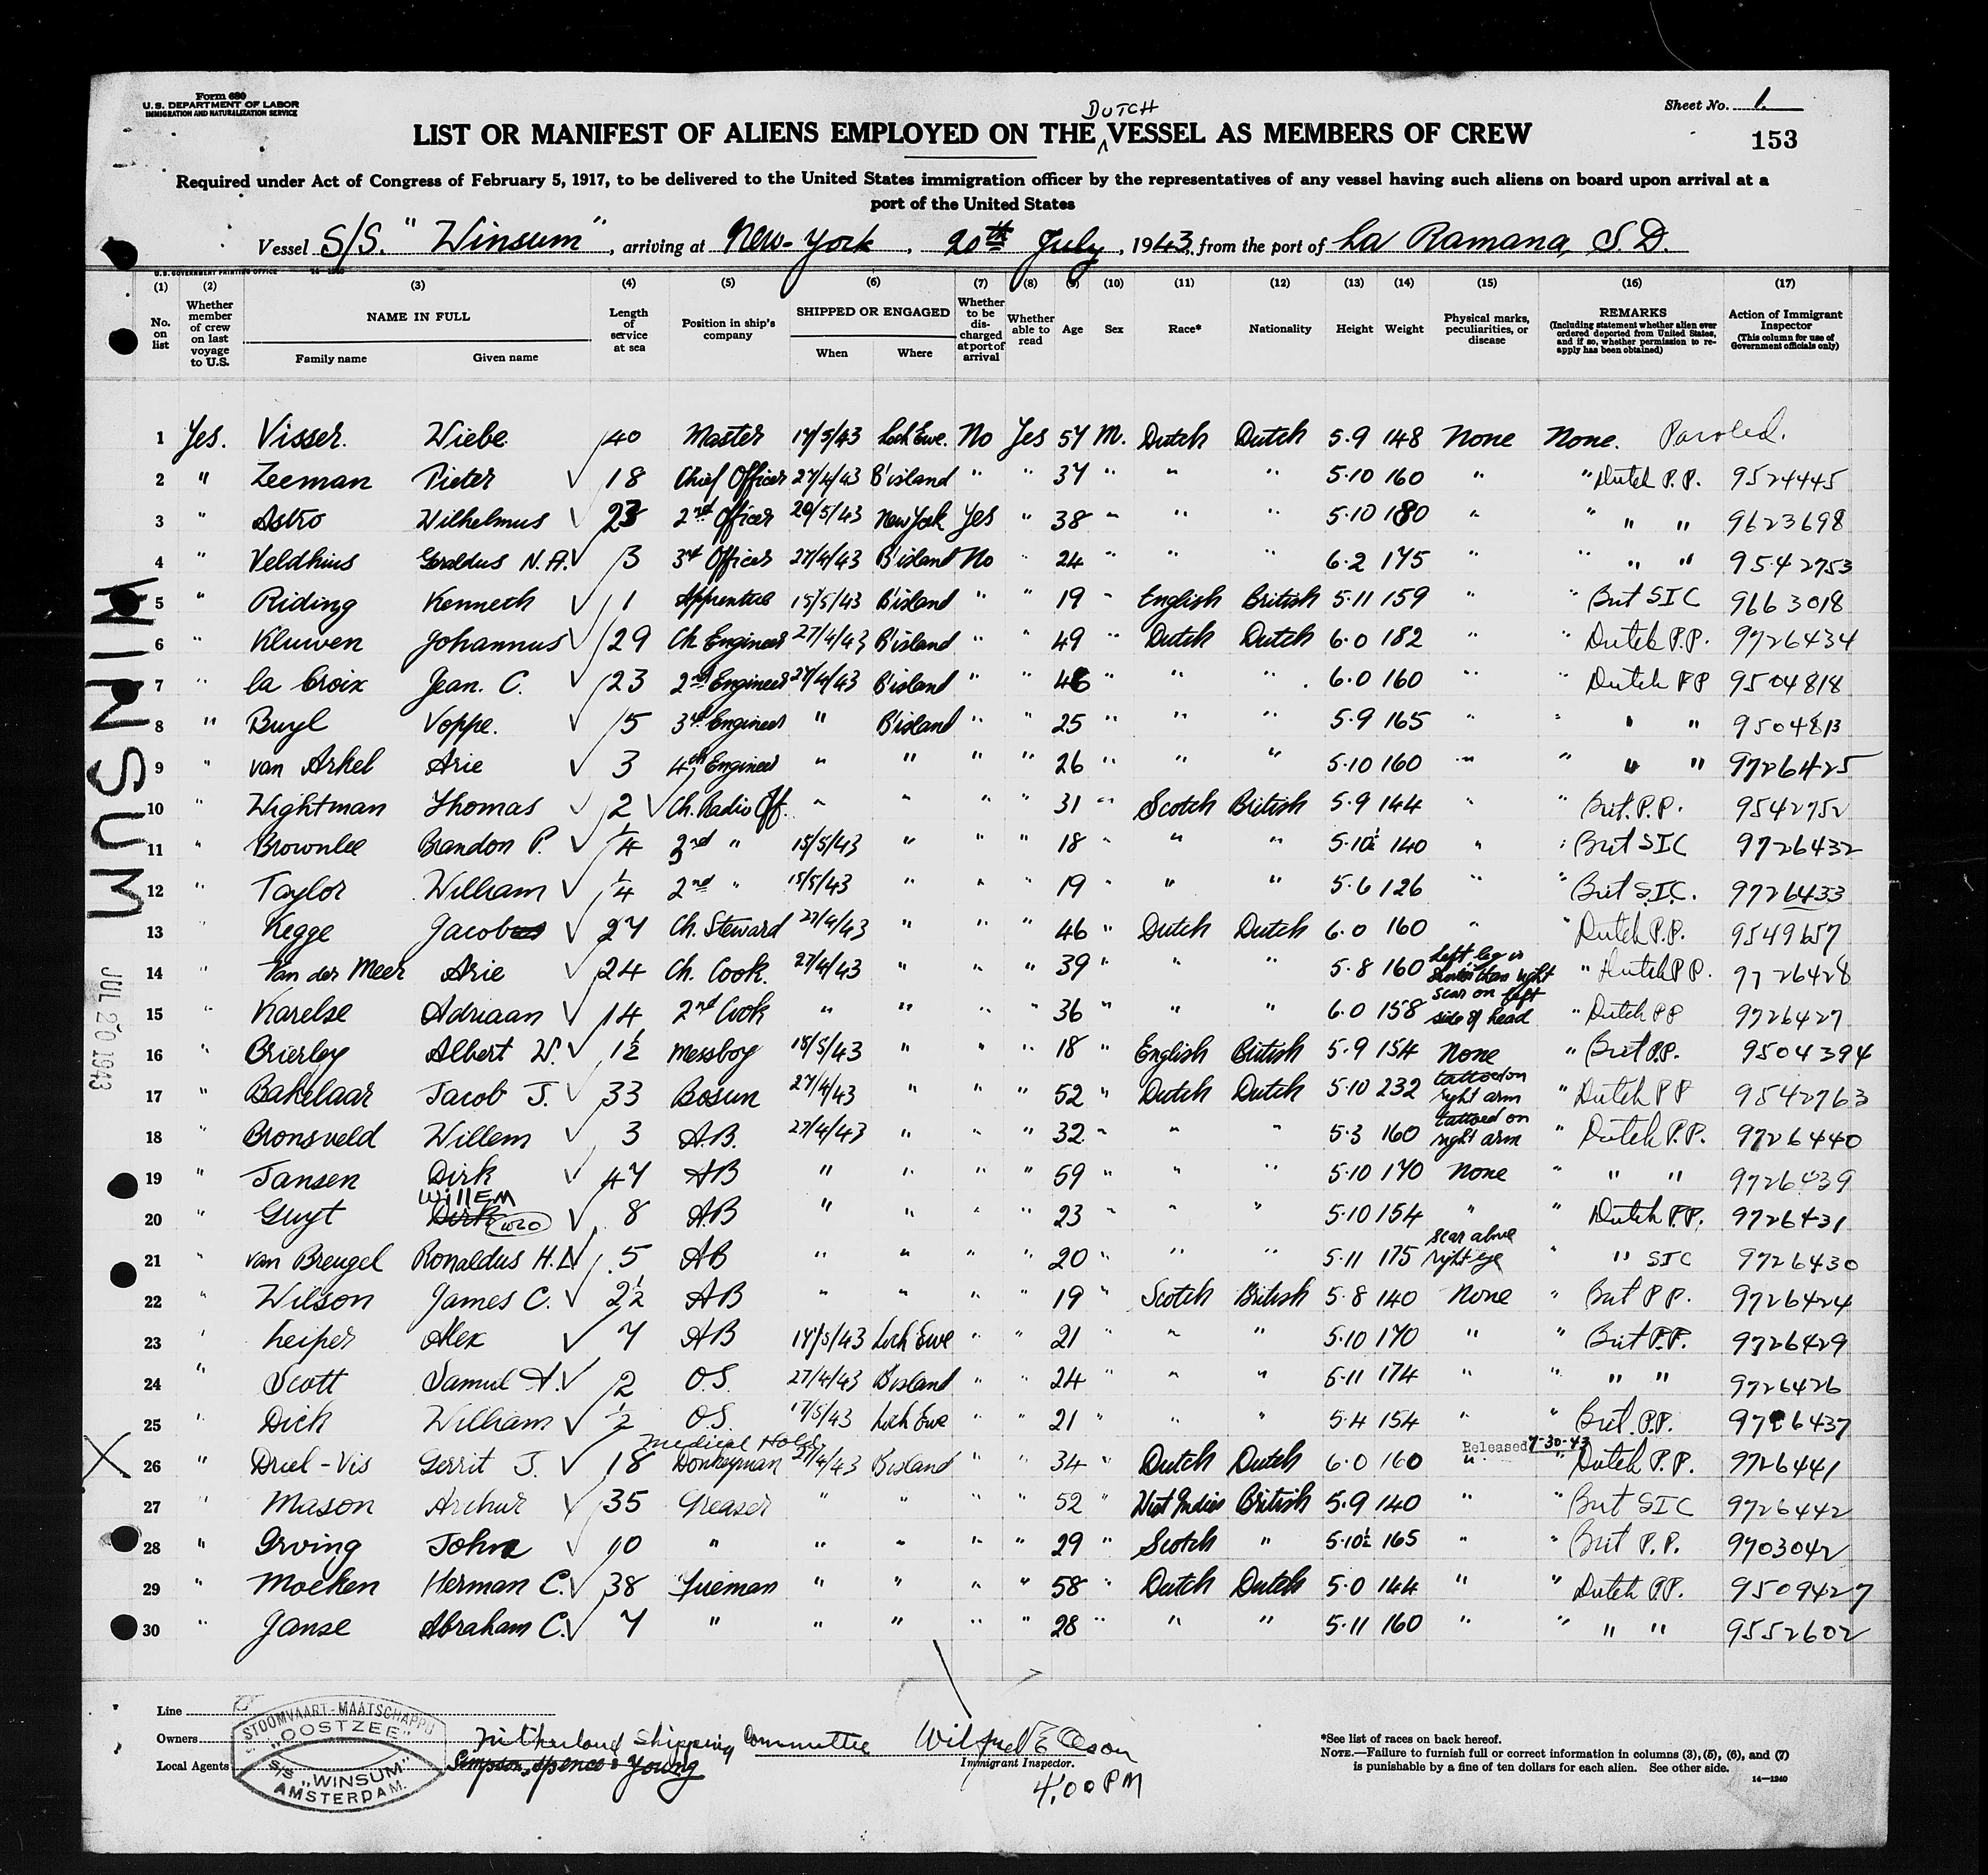 Form 680
U.S. DEPARTMENT OF LABOR
IMMIGRATION AND NATURALIZATION SERVICE
Sheet No. 1
153
DUTCH
LIST OR MANIFEST OF ALIENS EMPLOYED ON THE VESSEL AS MEMBERS OF CREW
Required under Act of Congress of February 5, 1917, to be delivered to the United States immigration officer by the representatives of any vessel having such aliens on board upon arrival at a
port of the United States
Vessel S/S. "Winsum", arriving at New-York, 20th July, 1943, from the port of La Ramana, S.D.
U.S. GOVERNMENT PRINTING OFFICE
(1) (2) (3) (4) (5) (6) (7) (8) (9) (10) (11) (12) (13) (14) (15) (16) (17)
No. on list
Whether member of crew on last voyage to U.S.
NAME IN FULL
Family name Given name
Length of service at sea
Position in ship's company
SHIPPED OR ENGAGED
When Where
Whether to be discharged at port of arrival
Whether able to read
Age
Sex
Race*
Nationality
Height
Weight
Physical marks, peculiarities, or disease
REMARKS
(Including statement whether alien ever ordered deported from United States, and if so, whether permission to reapply has been obtained)
Action of Immigrant Inspector
(This column for use of Government officials only)
1 Yes. Visser. Wiebe 40 Master 17/5/43 Loch Ewe. No Yes 57 M. Dutch Dutch 5.9 148 None None. Paroled.
2 " Zeeman Pieter √ 18 Chief Officer 27/4/43 B'island " " 37 " " " 5.10 160 " " Dutch P.P. 9524445
3 " Astro Wilhelmus √ 23 2nd Officer 20/5/43 New York Yes " 38 " " " 5.10 180 " " " 9623698
4 " Veldhuis Geraldus N.A. √ 3 3rd Officer 27/4/43 B'island No " 24 " " " 6.2 175 " " " " 9542753
5 " Riding Kenneth √ 1 Apprentice 15/5/43 B'island " " 19 " English British 5.11 159 " " Brit SIC 9663018
6 " Kluwen Johannus √ 29 Ch. Engineer 27/4/43 B'island " " 49 " Dutch Dutch 6.0 182 " " Dutch P.P. 9726434
7 " la Croix Jean. C. √ 23 2nd Engineer 27/4/43 B'island " " 46 " " " 6.0 160 " " Dutch PP 9504818
8 " Buyl Voppe. √ 5 3rd Engineer " B'island " " 25 " " " 5.9 165 " " " " 9504813
9 " van Arkel Arie √ 3 4th Engineer " " " " 26 " " " 5.10 160 " " " " 9726425
10 " Wightman Thomas √ 2 √ Ch. Radio Off. " " " " 31 " Scotch British 5.9 144 " " Brit. P.P. 9542752
11 " Brownlee Brandon P. √ 1/4 2nd " 15/5/43 " " " 18 " " " 5.10½ 140 " " Brit SIC 9726432
12 " Taylor William √ 1/4 2nd " 15/5/43 " " " 19 " " " 5.6 126 " " Brit S.I.C. 9726433
13 Kegge Jacobus √ 27 Ch. Steward 27/4/43 " " " 46 " Dutch Dutch 6.0 160 " " Dutch P.P. 9549657
14 " Van der Meer Arie √ 24 Ch. Cook. 27/4/43 " " " 39 " " " 5.8 160 Left leg is shorter than right " Dutch P.P. 9726428
15 " Karelse Adriaan √ 14 2nd Cook " " " " 36 " " " 6.0 158 scar on left side of head " Dutch PP 9726427
16 " Brierley Albert W. √ 1½ Messboy 18/5/43 " " " 18 " English British 5.9 154 None " Brit P.P. 9504394
17 " Bakelaar Jacob J. √ 33 Bosun 27/4/43 " " " 52 " Dutch Dutch 5.10 232 tattoed on right arm " Dutch PP 9542763
18 " Bronsveld Willem √ 3 A.B. 27/4/43 " " " 32 " " " 5.3 160 tattoed on right arm " Dutch P.P. 9726440
19 " Jansen Dirk √ 47 AB " " " " 59 " " " 5.10 170 None " " " 9726439
WillEM
20 " Guyt Dirk √ 8 AB " " " " 23 " " " 5.10 154 " " Dutch P.P. 9726431
21 " van Breugel Ronaldus H. √ 5 AB " " " " 20 " " " 5.11 175 scar above right eye " " SIC 9726430
22 " Wilson James C. √ 2½ AB " " " " 19 " Scotch British 5.8 140 None " Brit P.P. 9726424
23 " Leiper Alex √ 7 AB 17/5/43 Loch Ewe " " 21 " " 5.10 170 " " Brit P.P. 9726429
24 " Scott Samuel A. √ 2 O.S. 27/4/43 B'island " " 24 " " 5.11 174 " " " " 9726426
25 " Dick William √ ½ O.S. 17/5/43 Loch Ewe " " 21 " " " 5.4 154 " " Brit. P.P. 9726437
medical Hold Released 7-30-43
26 " Driel-Vis Gerrit J. √ 18 Donkeyman 27/4/43 B'island " " 34 " Dutch Dutch 6.0 160 " " Dutch P.P. 9726441
27 " Mason Archur √ 35 Greaser " " " " 52 " West Indies British 5.9 140 " " Brit SIC 9726442
28 " Irving John √ 10 " " " " " 29 " Scotch " 5.10½ 165 " " Brit P.P. 9703042
29 " Moeken Herman C. √ 38 Fireman " " " " 58 " Dutch Dutch 5.0 144 " " Dutch P.P. 9509427
30 " Janse Abraham C. √ 7 " " " " " 28 " " " 5.11 160 " " " " 9552602
WINSUM
JUL 20 1943
Line
Owners Netherland Shipping Committee
Local Agents Simpson, Spence & Young
STOOMVAART-MAATSCHAPPIJ
"OOSTZEE"
S/S "WINSUM"
AMSTERDAM.
Wilfred E Olson
Immigrant Inspector.
4.00 PM
*See list of races on back hereof.
NOTE.—Failure to furnish full or correct information in columns (3), (5), (6), and (7)
is punishable by a fine of ten dollars for each alien. See other side.
14—1240